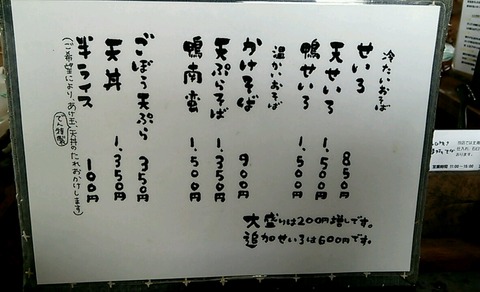 冷たいおそば
せいろ 850
天せいろ 1,500
鴨せいろ 1,500
温かいおそば
かけそば 900
天ぷらそば 1,350
鴨南蛮 1,500
ごぼう天ぷら 350
天丼 1,350円
半ライス 100円
(ご希望により、あげ玉、天丼のたれおかけします)
大盛りは200円増しです。
追加せいろは600円です。
営業時間 11:00~15:00